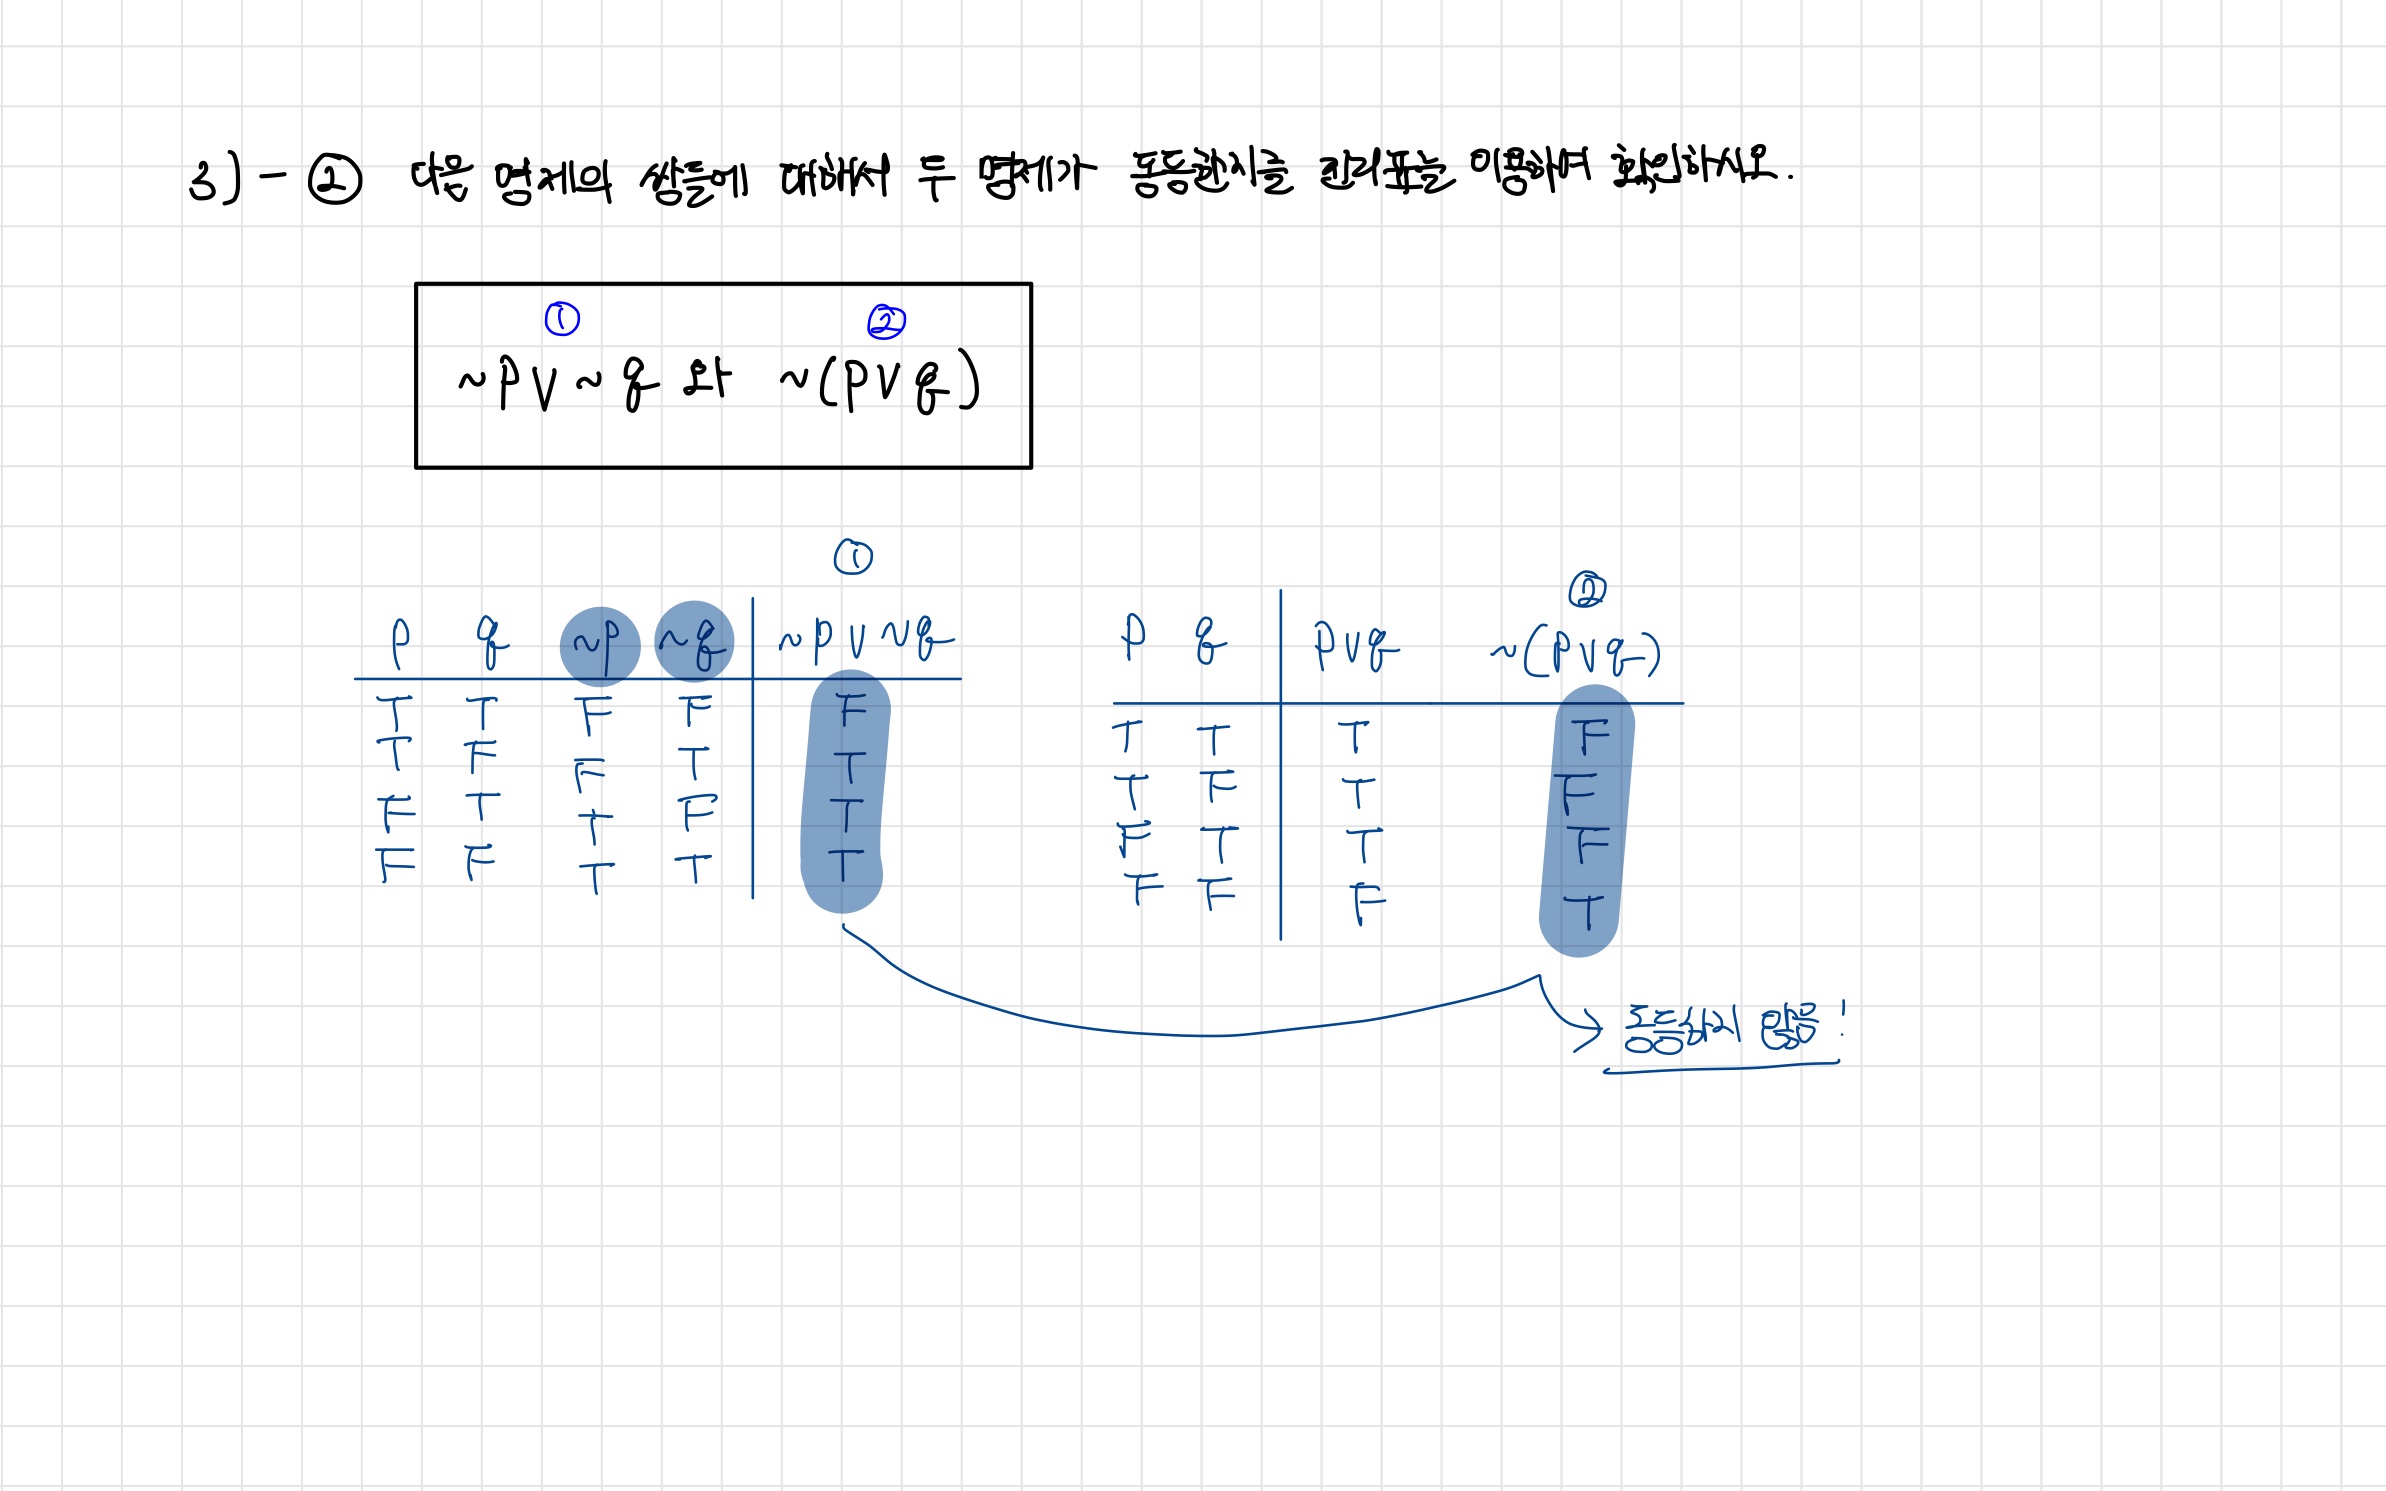 3)-② 다음 명제의 쌍들에 대해서 두 명제가 동등한지를 진리표를 이용하여 확인하시오.
① ②
~p∨~q 와 ~(p∨q)
①
p q ~p ~q ~p∨~q
T T F F F
T F F T T
F T T F T
F F T T T
②
p q p∨q ~(p∨q)
T T T F
T F T F
F T T F
F F F T
동등하지 않음!